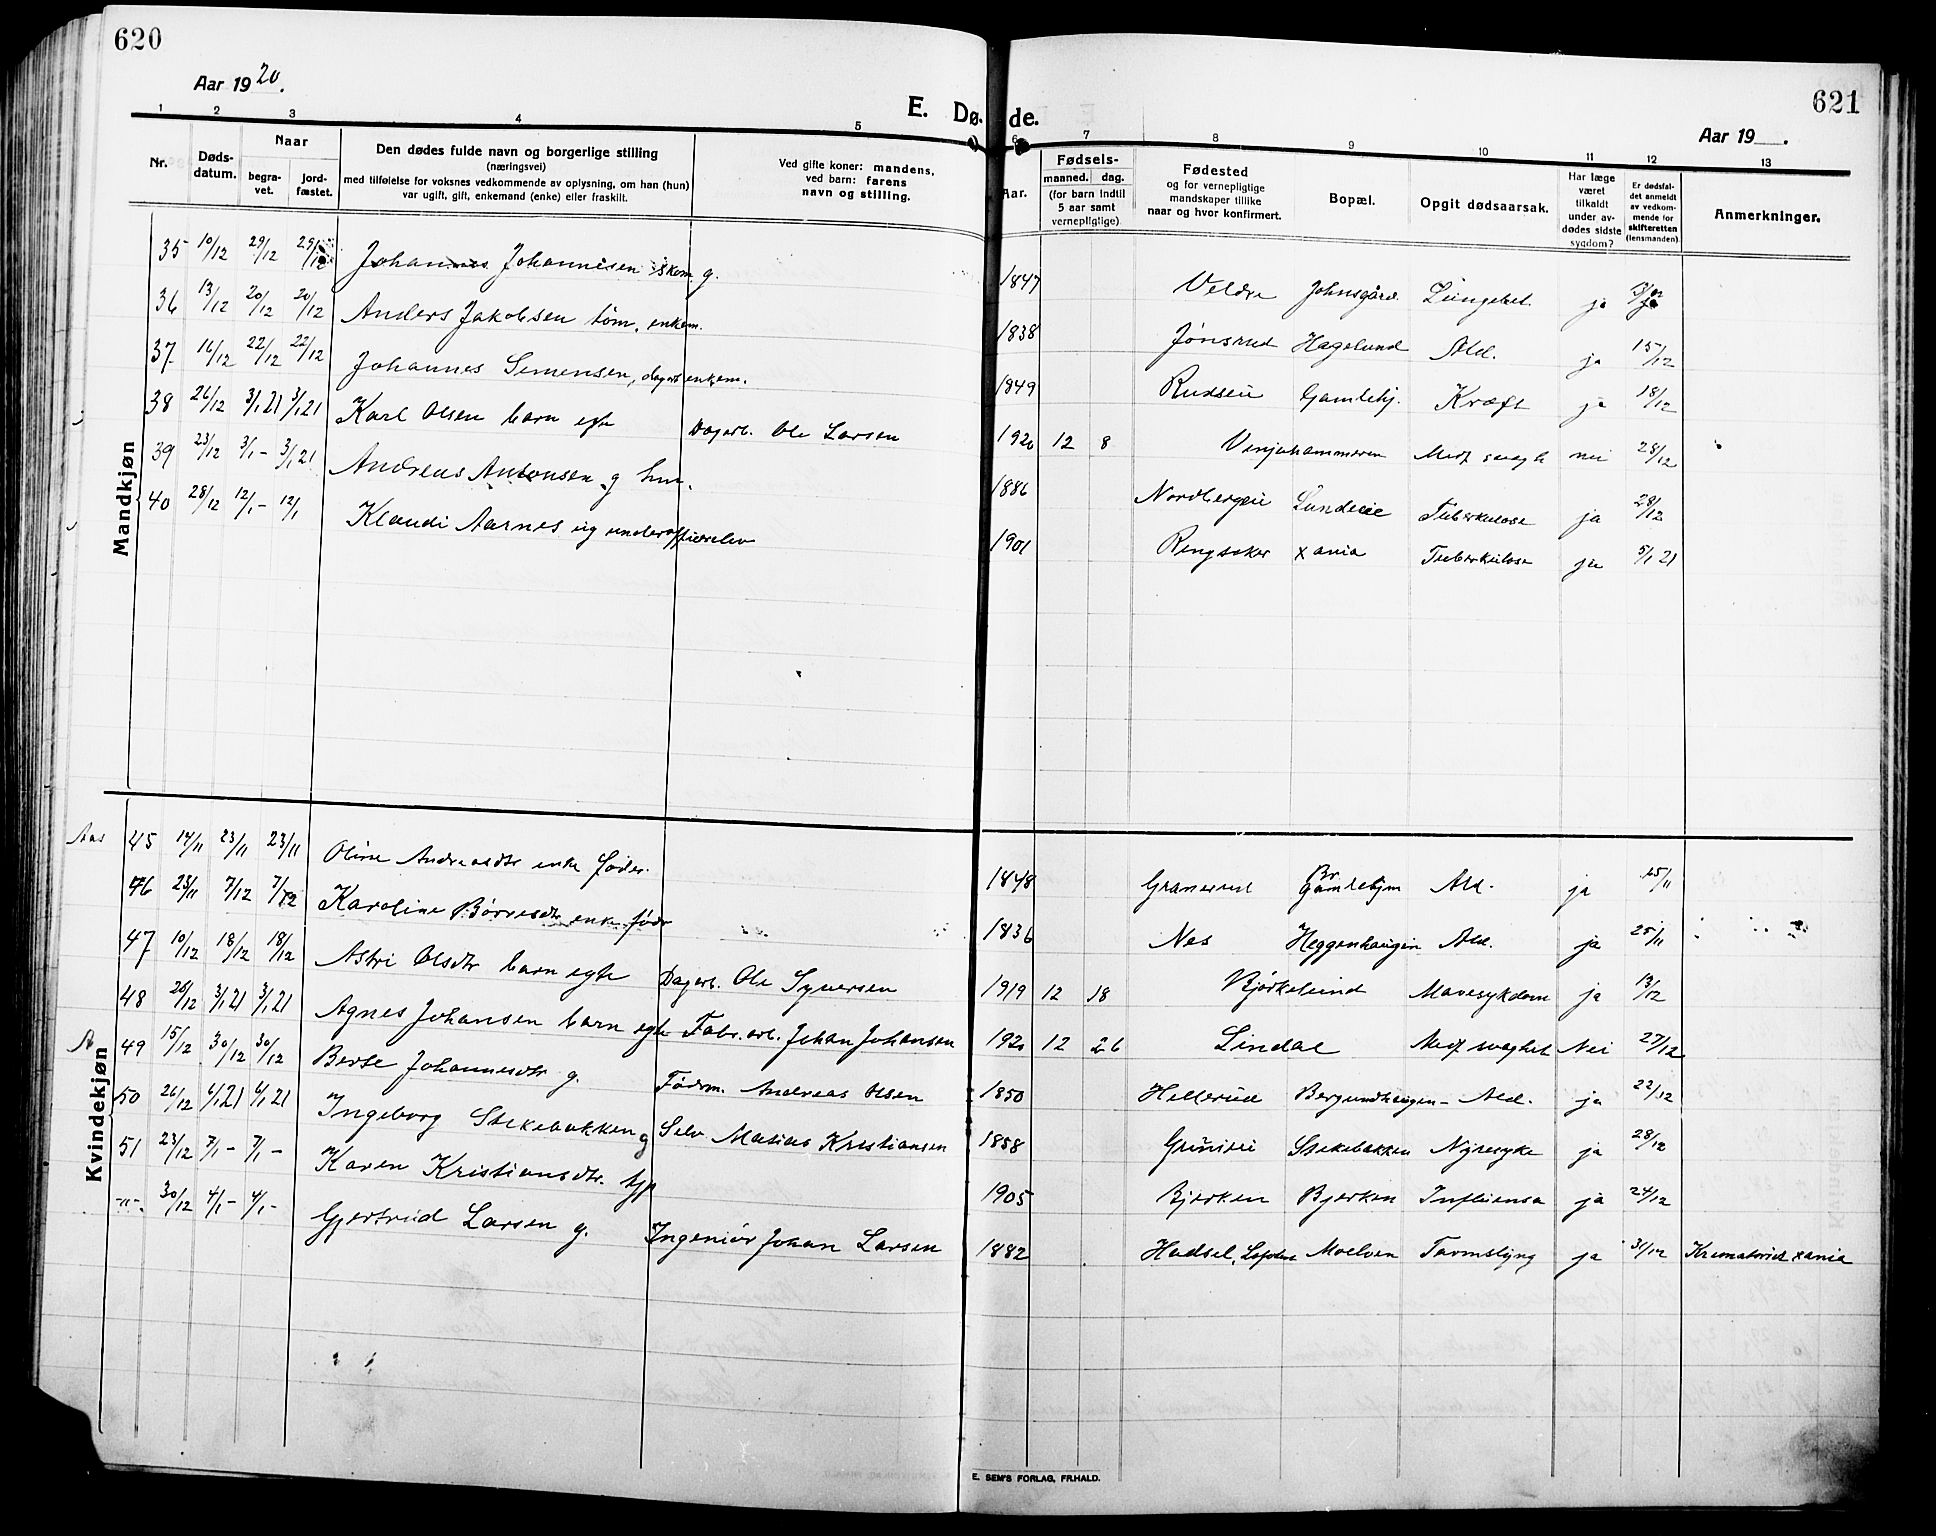 620
Aar 1920.
E. Dø-
1 2 3 4 5
Nr.
Døds-
datum.
Naar
begra-
vet.
jord-
fæstet.
Den dødes fulde navn og borgerlige stilling
(næringsvei)
med tilføielse for voksnes vedkommende av oplysning, om han (hun)
var ugift, gift, enkemand (enke) eller fraskilt.
Ved gifte koner: mandens,
ved barn: farens
navn og stilling.
Mandkjøn
35 10/12 29/12 29/12 Johannes Johannesen skom. g.
36 13/12 20/12 20/12 Anders Jakobsen tøm. enkem.
37 16/12 22/12 22/12 Johannes Simensen, dagarb. enkem.
38 26/12 3/1 21 3/1 21 Karl Olsen barn egte Dagarb. Ole Larsen
39 23/12 3/1 - 3/1 21 Andreas Antonsen g
40 28/12 12/1 - 12/1 Klaudi Aarnes ug underoffiserelev
Kvindekjøn
Aas 45 14/11 23/11 23/11 Oline Andreasdtr enke føder.
46 23/11 7/12 7/12 Karoline Børresdtr enke fødr
47 10/12 18/12 18/12 Astri Olsdtr barn egte Dagarb. Ole Syversen
48 26/12 3/1 21 3/1 21 Agnes Johansen barn egte Fabr.arb. Johan Johansen
A 49 15/12 30/12 30/12 Berte Johannesdtr g. Fødrm. Andreas Olsen
50 26/12 4/1 21 4/1 21 Ingeborg Stekebakken g Selv. Matias Kristiansen
51 23/12 7/1 - 7/1 - Karen Kristiansdtr. tjp
-"-. 30/12 4/1 - 4/1 - Gjertrud Larsen g. Ingeniør Johan Larsen
621
de.
Aar 19 .
6 7 8 9 10 11 12 13
Aar.
Fødsels-
maaned. dag.
(for barn indtil
5 aar samt
vernepligtige)
Fødested
og for vernepligtige
mandskaper tillike
naar og hvor konfirmert.
Bopæl.
Opgit dødsaarsak.
Har læge
været
tilkaldt
under av-
dødes sidste
sygdom?
Er dødsfal-
det anmeldt
av vedkom-
mende for
skifteretten
(lensmanden).
Anmerkninger.
1847 Veldre Johnsgård. Lungebet. ja
1838 Jønsrud Hagelund Ald. ja 15/12
1849 Rudseie Gamlehj. Kræft ja 18/12
1920 12 8 Vinjuhammeren Medf svagh nei 28/12
1886 Nordbergeie Lundeie Tuberkulose ja 28/12
1901 Ringsaker xania Tuberkulose ja 5/1 21
1848 Granerud Br. Gamlehjm Ald. ja 15/11
1836 Nes Heggenhaugen Ald. ja 25/11
1919 12 18 Bjørkelund Mavesykdom ja 13/12
1920 12 26 Lindal Medf svaghet Nei 27/12
1850 Hellerud Bergundhaugen - Ald. ja 22/12
1858 Grüniseie Stekebakken Nyresyke ja 28/12
1905 Bjerken Bjerken Influensa ja 24/12
1882 Hadsel, Lofoten Moelven Tarmslyng ja 31/12 Krematoriet xania
E. SEM'S FORLAG, FR.HALD.